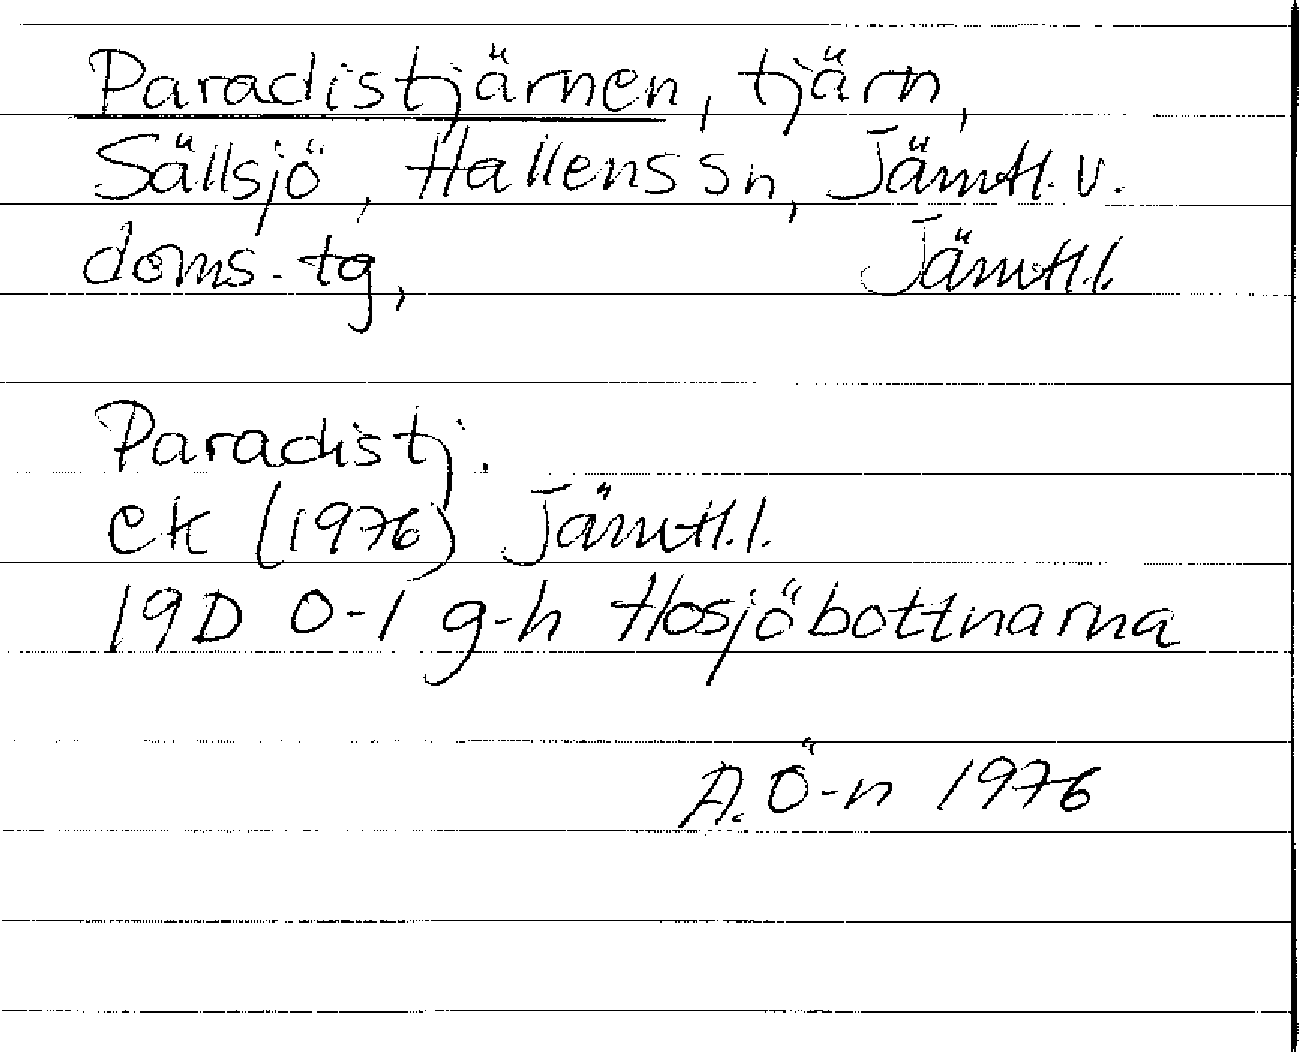 Paradistjärnen, tjärn,
Sällsjö, Hallens sn, Jämtl. v.
doms.tg, Jämtl.l.
Paradistj.
ek (1976) Jämtl.l.
19D 0-1 g-h Hosjöbottnarna
A. Ö-n 1976